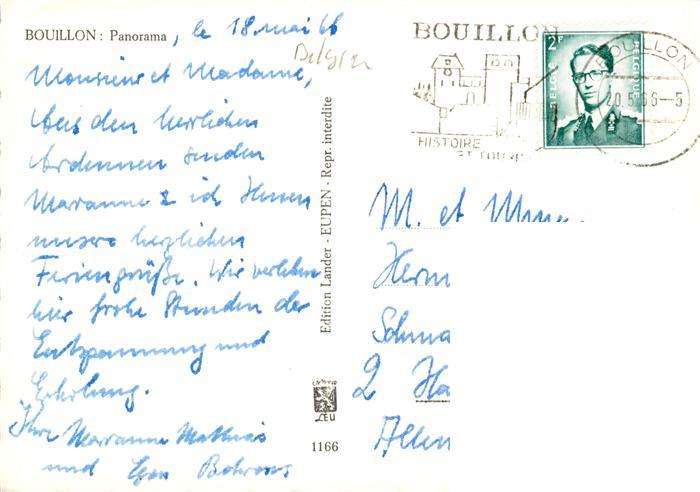 BOUILLON : Panorama, le 18. mai 66
Belgien
Monsieur et Madame,
Aus den herrlichen
Ardennen senden
Marianne & ich Ihnen
unsere herzlichen
Feriengrüße. Wir verleben
hier frohe Stunden der
Entspannung und
Erholung.
Ihre Marianne Mathias
und Egon
Edition Lander - EUPEN - Repr. interdite
LEU
1166
BOUILLON
HISTOIRE
ET
2F
BELGIE BELGIQUE
BOUILLON
20.5.66-5
M. et Mme
Herm
Schma
2 Ha
Allen